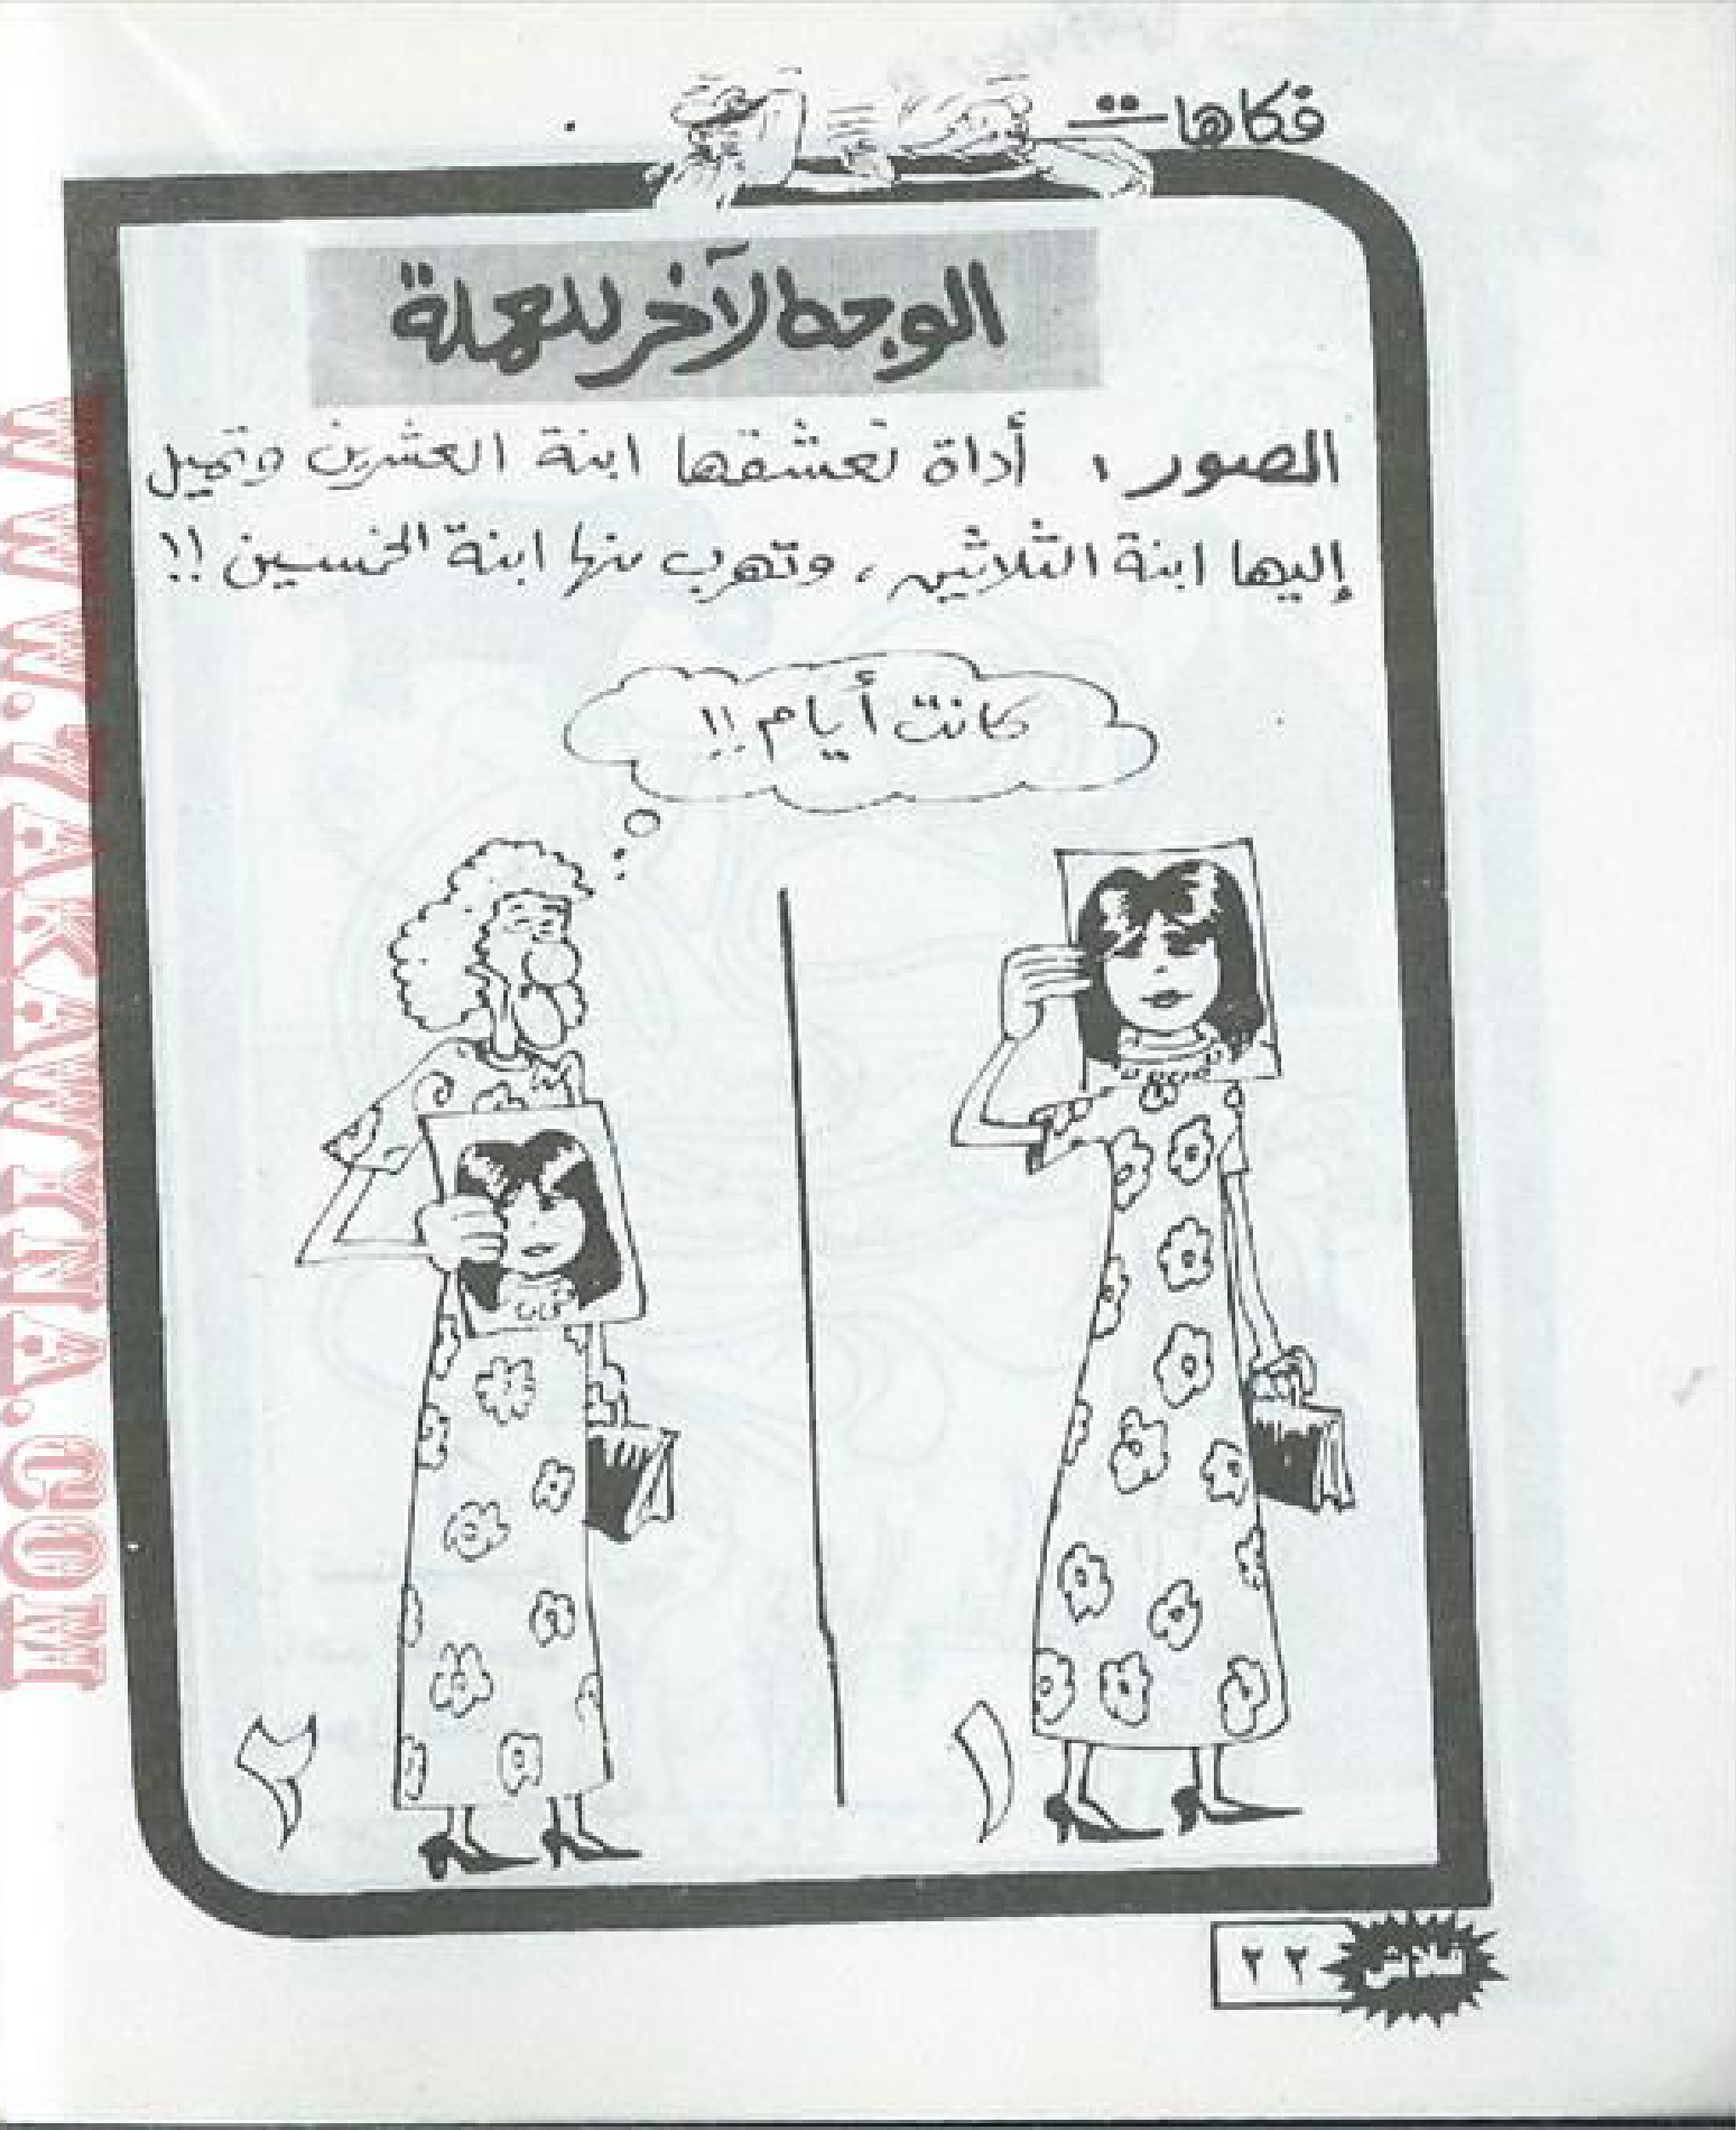 فكاهات
الوجه الآخر للعملة
الصور، أداة تعشقها ابنة العشرين وتميل
إليها ابنة الثلاثين، وتهرب منها ابنة الخمسين !!
كانت أيام !!
١
٢
فلاش ٢٢
WWW.ZAKAWTNA.COM